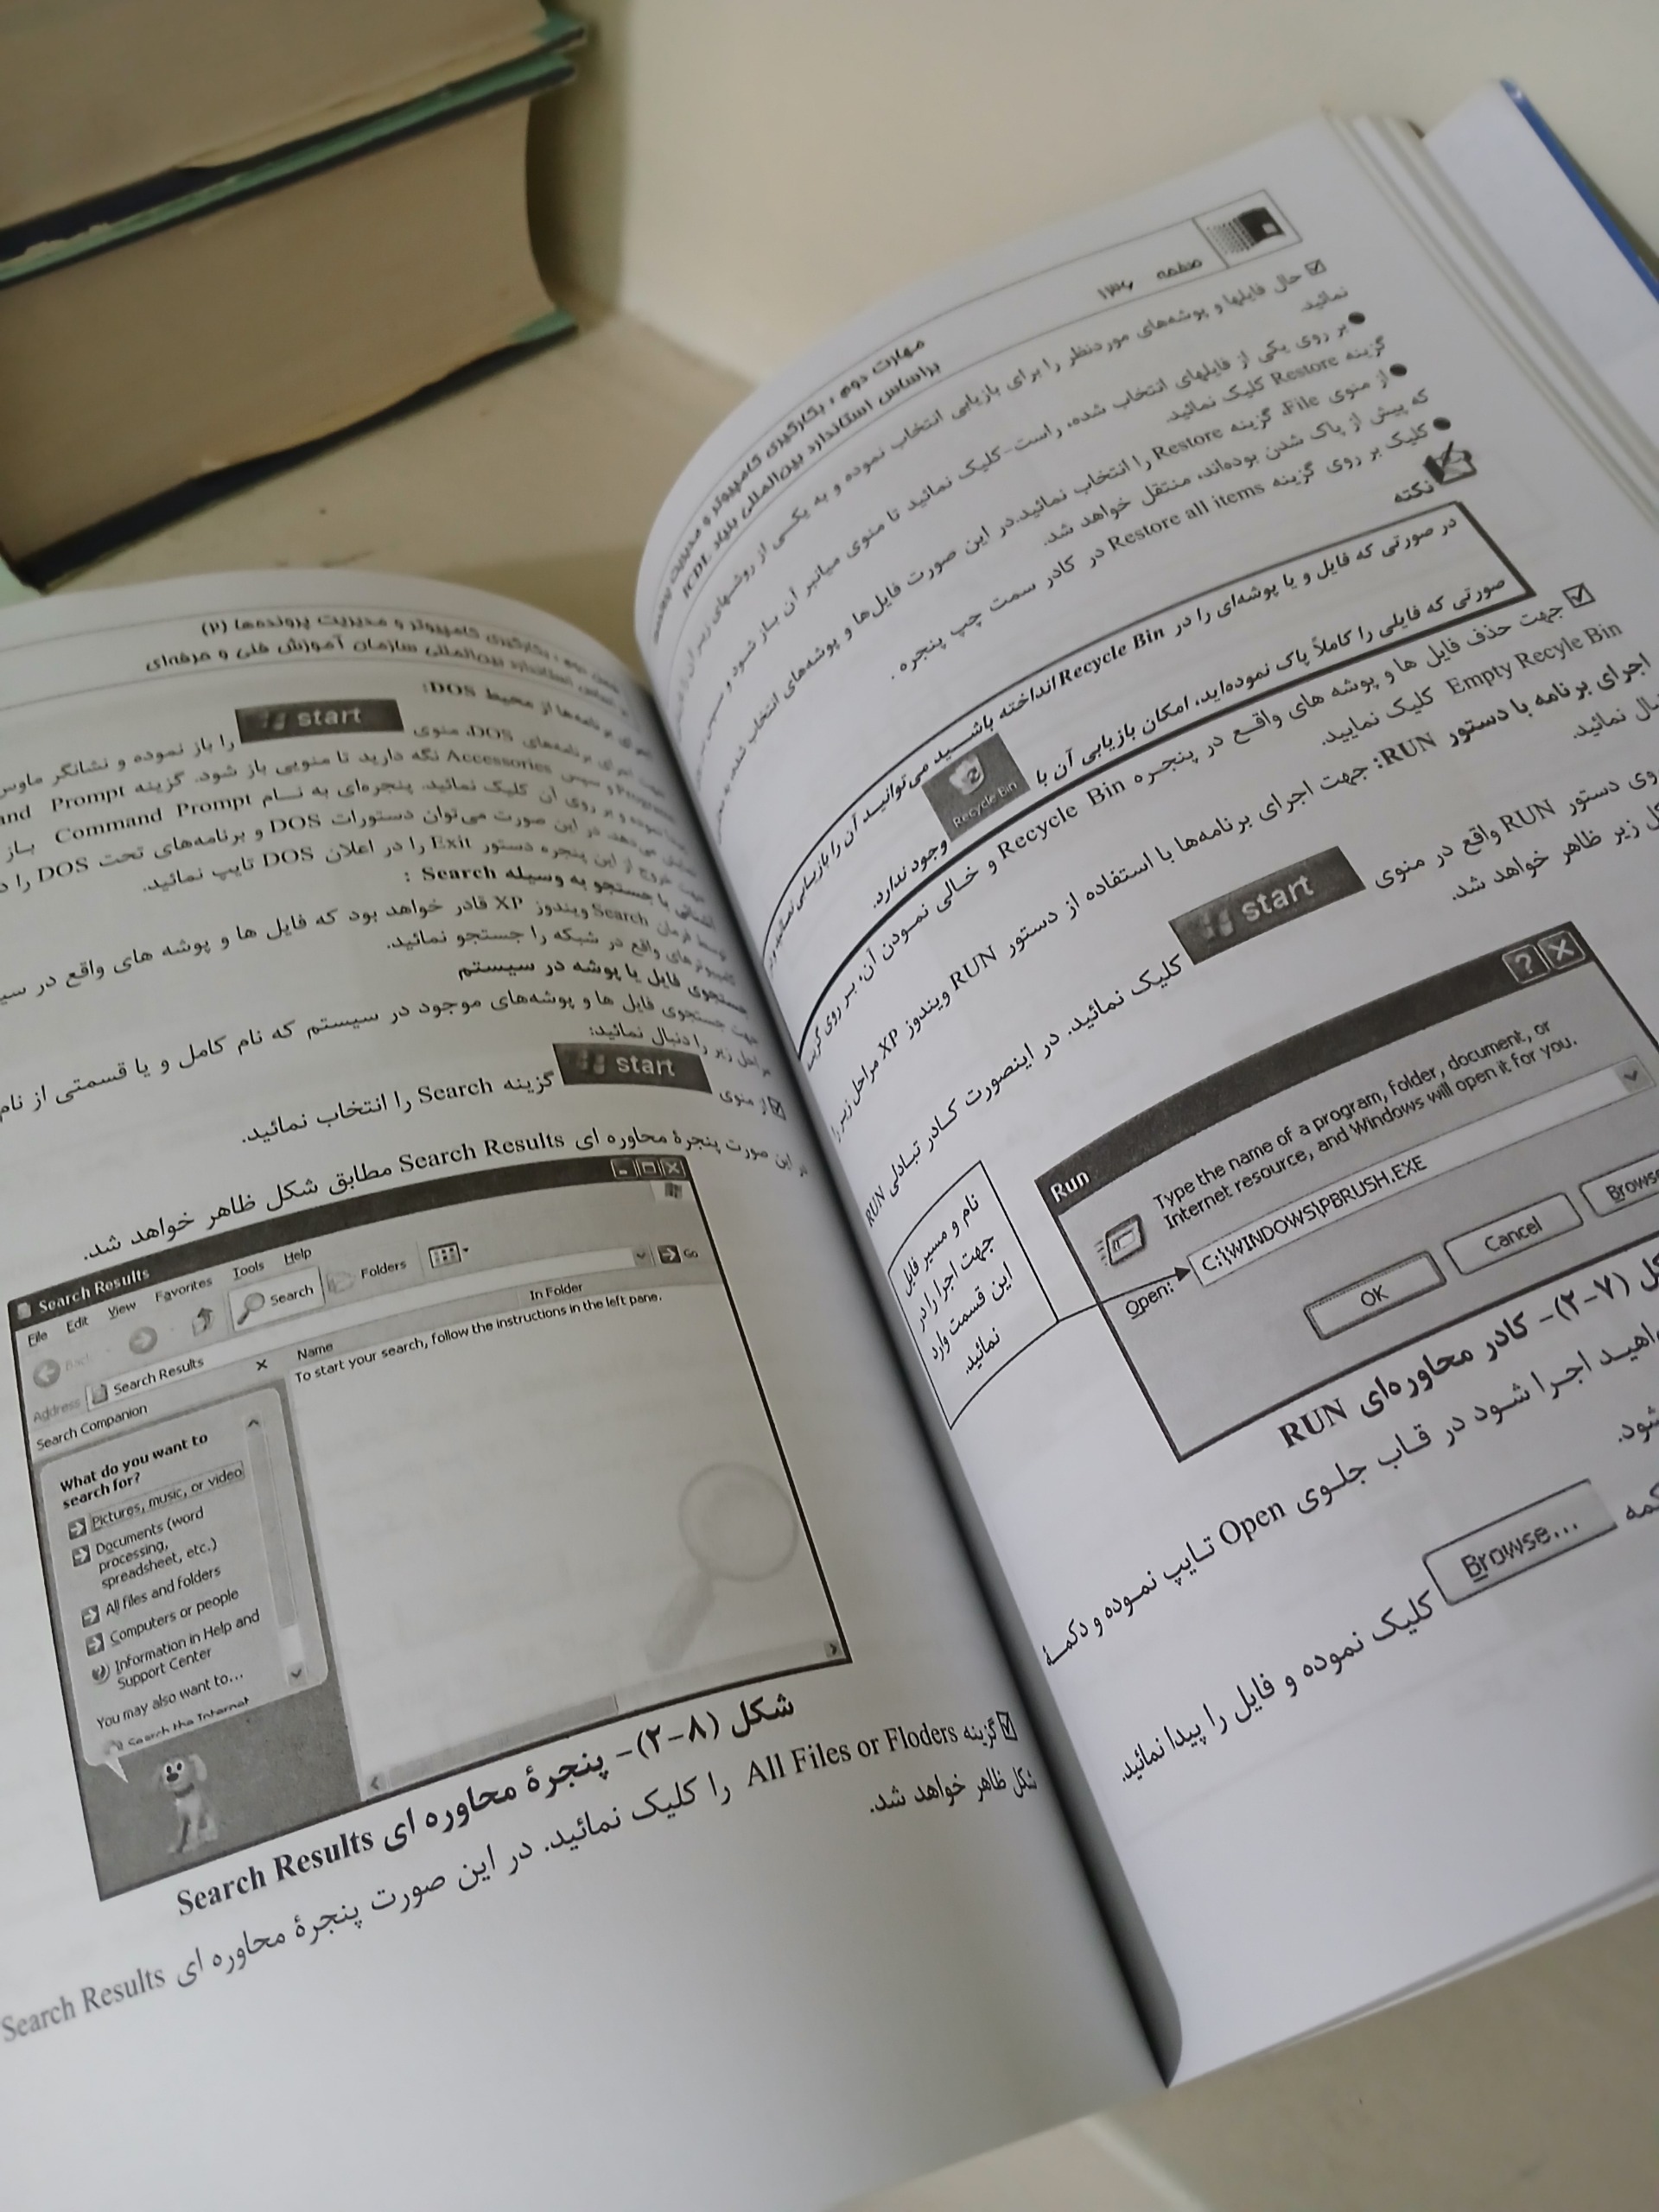 صفحه ۱۳۶
مهارت دوم : بکارگیری کامپیوتر و مدیریت
براساس استاندارد بین‌المللی بنیاد ICDL
حال فایلها و پوشه‌های موردنظر را برای بازیابی انتخاب نموده و به یکی از روشهای زیر آن را
نمائید.
بر روی یکی از فایلهای انتخاب شده، راست-کلیک نمائید تا منوی میانبر آن باز شود و سپس
گزینه Restore کلیک نمائید.
از منوی File، گزینه Restore را انتخاب نمائید.در این صورت فایل‌ها و پوشه‌های انتخاب شده، به
که پیش از پاک شدن بوده‌اند، منتقل خواهد شد.
کلیک بر روی گزینه Restore all items در کادر سمت چپ پنجره .
نکته
در صورتی که فایل و یا پوشه‌ای را در Recycle Bin انداخته باشید می‌توانید آن را بازیابی
صورتی که فایلی را کاملاً پاک نموده‌اید، امکان بازیابی آن با
Recycle Bin
وجود ندارد.
جهت حذف فایل ها و پوشه های واقع در پنجره Recycle Bin و خالی نمودن آن، بر روی گزینه
Empty Recyle Bin کلیک نمایید.
اجرای برنامه با دستور RUN: جهت اجرای برنامه‌ها با استفاده از دستور RUN ویندوز XP مراحل زیر را
نمائید.
روی دستور RUN واقع در منوی start کلیک نمائید. در اینصورت کادر تبادلی RUN
زیر ظاهر خواهد شد.
Run
Type the name of a program, folder, document, or
Internet resource, and Windows will open it for you.
Open: C:\WINDOWS\PBRUSH.EXE
OK
Cancel
Browse
نام و مسیر فایل
جهت اجرا را در
این قسمت وارد
نمائید.
(۲-۷)- کادر محاوره‌ای RUN
اجرا شود در قاب جلوی Open تایپ نموده و دکمهٔ
شود.
Browse... کلیک نموده و فایل را پیدا نمائید.
بکارگیری کامپیوتر و مدیریت پرونده‌ها (۲)
استاندارد بین‌المللی سازمان آموزش فنی و حرفه‌ای
برنامه‌ها از محیط DOS:
اجرای برنامه‌های DOS، منوی start را باز نموده و نشانگر ماوس
و سپس Accessories نگه دارید تا منویی باز شود. گزینه Prompt
نموده و بر روی آن کلیک نمائید. پنجره‌ای به نام Command Prompt باز
می‌دهد. در این صورت می‌توان دستورات DOS و برنامه‌های تحت DOS را
خروج از این پنجره دستور Exit را در اعلان DOS تایپ نمائید.
با جستجو به وسیله Search :
توسط فرمان Search ویندوز XP قادر خواهد بود که فایل ها و پوشه های واقع در
کامپیوترهای واقع در شبکه را جستجو نمائید.
جستجوی فایل یا پوشه در سیستم
جهت جستجوی فایل ها و پوشه‌های موجود در سیستم که نام کامل و یا قسمتی از نام
مراحل زیر را دنبال نمائید:
از منوی start گزینه Search را انتخاب نمائید.
در این صورت پنجرهٔ محاوره ای Search Results مطابق شکل ظاهر خواهد شد.
Search Results
File Edit View Favorites Tools Help
Back Search Folders
Address Search Results Go
Search Companion
Name In Folder
To start your search, follow the instructions in the left pane.
What do you want to
search for?
Pictures, music, or video
Documents (word
processing,
spreadsheet, etc.)
All files and folders
Computers or people
Information in Help and
Support Center
You may also want to...
Search the Internet
شکل (۲-۸)- پنجرهٔ محاوره ای Search Results
گزینه All Files or Floders را کلیک نمائید. در این صورت پنجرهٔ محاوره ای Search Results
شکل ظاهر خواهد شد.